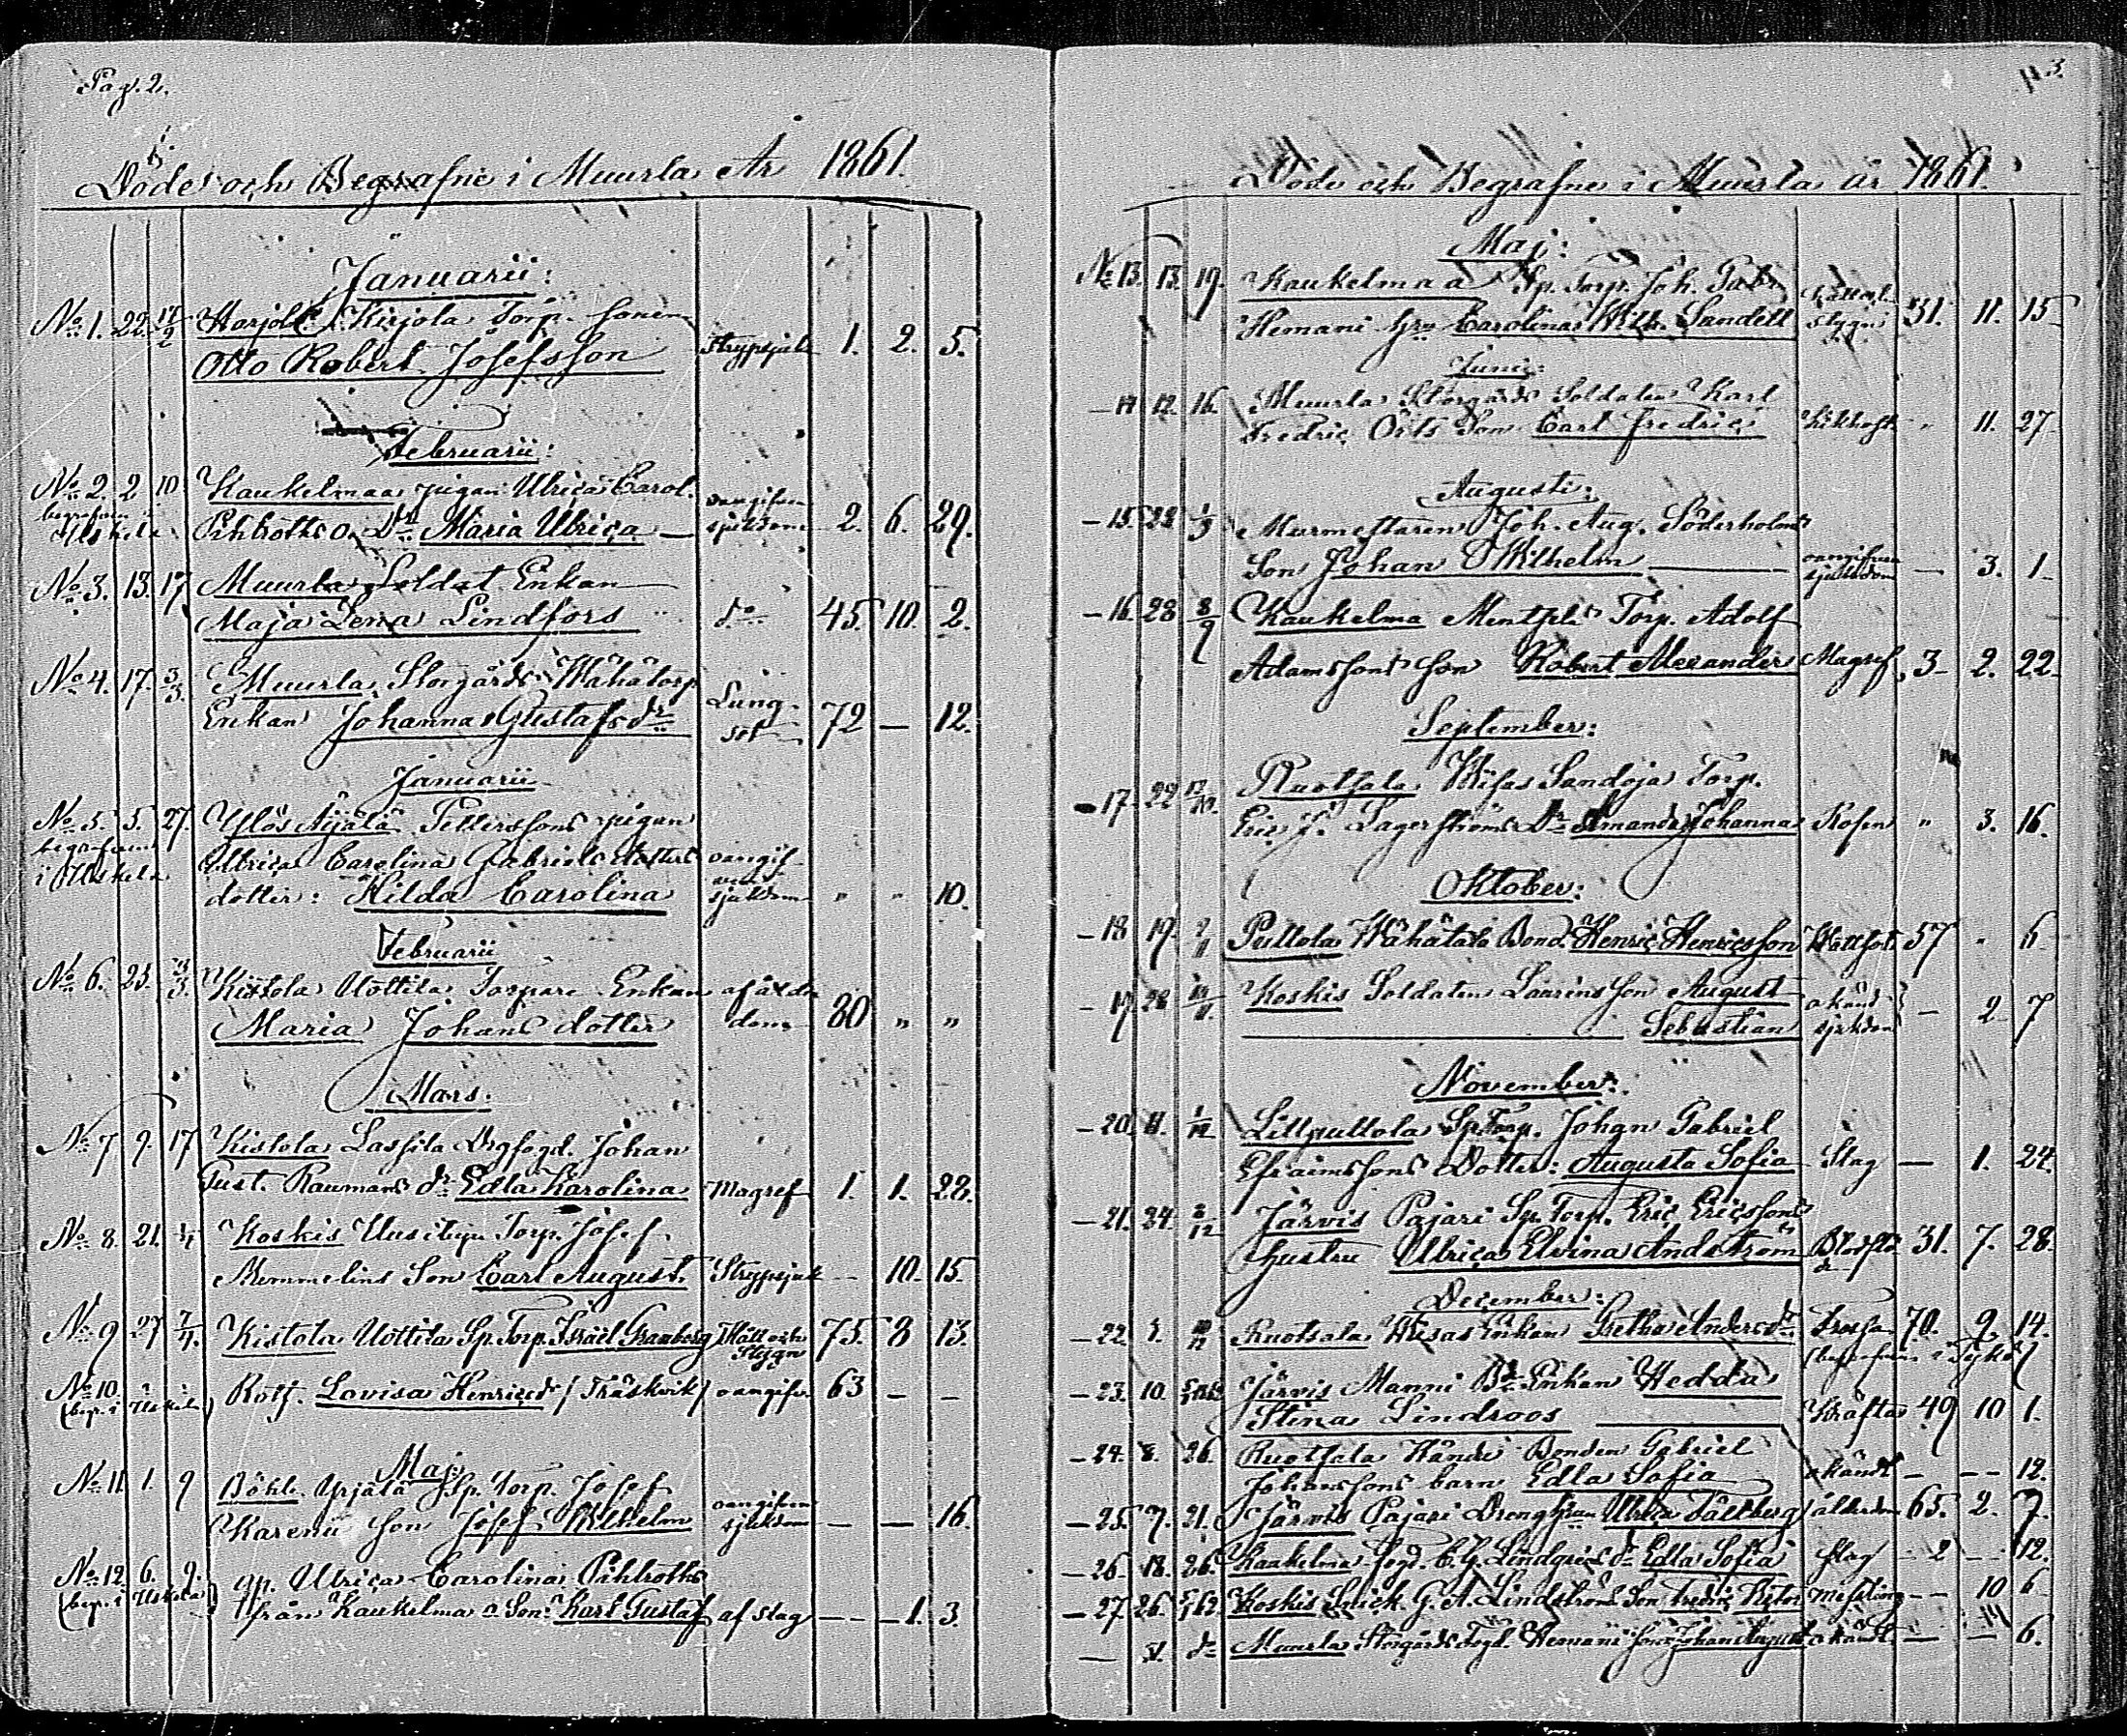 Pag. 2.
Döde och Begrafne i Muurla År 1861.
Januarii:
No 1. 22. 17/2 Harjola Kirjola Torp. Sonen
Otto Robert Josefsson Strypsjuk 1. 2. 5.
Februarii:
No 2. 2 10. Kaukelmaa pigan Ulrica Carol. oangifven
begrafven i Uskela Pihlroths o. Dr Maria Ulrica — sjukdom 2. 6. 29.
No 3. 13. 17 Muurla Soldat Enkan
Maja Lena Lindfors do 45. 10. 2.
No 4. 17. 3/3. Muurla Storgårds Wähätorp Lung-
Enkan Johanna Gustafsdr sot 72 — 12.
Januarii
No 5. 5. 27. Ylös Äijälä Petterssons pigan
begrafven Ulrica Carolina Gabriels dotters oangif-
i Uskela dotter: Hilda Carolina sjukdom " " 10.
Februarii
No 6. 23. 3/3. Kistola Uottila Torpare Enkan af ålder
Maria Johans dotter dom 80 " "
Mars.
No 7 9. 17 Kistola Lassila Drgfogd. Johan
Gust. Raumans dr Edla Karolina Magref 1. 1. 28.
No 8. 21. 1/4 Koskis Uusitupa Torp. Josef
Memmelins Son Carl August. Strypsjuk — 10. 15.
No 9 27 7/4. Kistola Uottila Sp. Torp. Israel Granberg Håll och Stygn 75. 8 13.
No 10. Rotf. Lovisa Henricsdr (Träskvik) oangifv. 63 — —
(begr. i Uskela)
Maj:
No 11. 1. 9 Böhle Yrjälä Sp. Torp. Josef oangifven
Karenii Son Josef Wilhelm sjukdom — — 16.
No 12. 6. 9. qp. Ulrica Carolina Pihlroths
(begr. i Uskela) från Kaukelma o. Son: Karl Gustaf af slag — — 1. 3.
3.
Döde och Begrafne i Muurla år 1861.
Maj:
No 13. 13. 19. Kaukelmaa Sp. Torp. Joh. Gabr.
Hemani Hru Carolina Wilh. Sandell stygn 31. 11. 15
Junii:
— 14 12. 16. Muurla Storgårds Soldaten Karl
Fredric Örts Son Carl Fredric Kikhost " 11. 27
Augusti:
— 15. 22 1/9 Murmestaren Joh. Aug. Söderholms
Son Johan Wilhelm — oangifven sjukdom — 3. 1
— 16. 28 8/9 Kaukelma Torp. Adolf
Adamssons Son Robert Alexander Magref 3 2. 22
September:
— 17. 22 Ruotsala Wisas Sandoja Torp.
Eric J. Lagerströms Dr Amanda Johanna Rosen " 3. 16.
Oktober:
— 18 19. Pullola Wähätalo Bond. Henric Henricsson Wattsot 57 " 6
— 19 28 Koskis Soldaten Laurens Son August okänd
Sebastian sjukdom — 2 7
November:
— 20. 11. 1/12 Littpullola Sp. Torp. Johan Gabriel
Efraimssons Dotter: Augusta Sofia Slag — 1. 24.
— 21. 24. 8/12 Järvis Pajari Sp. Torp. Eric Ericssons
Hustru Ulrica Elvina Andström 31. 7. 28.
December:
— 22. Ruotsala Wisas Enkan Gretha Andersdr Frossa 70. 9. 14.
— 23. 10. Järvis Manni Bde Enkan Hedda
Stina Lindroos — Kräfta 49 10 1.
— 24. 8. 26. Ruotsala Händi Bonden Gabriel
Johanssons barn Edla Sofia okänd — — 12.
— 25. 7. 21. Järvis Pajari Dreng Hru Ulrica Dållberg ålderdom 65. 2. 7.
— 26. 18. 26. Kaukelma Fogd. C. G. Lindqvists dr Edla Sofia slag — 2 — 12.
— 27 26. Koskis Snick. G. A. Lindströms Son Fredric Victor — 10 6
— do Muurla Storgårds Fogd. Hemani Son Johan August okänd — 6.